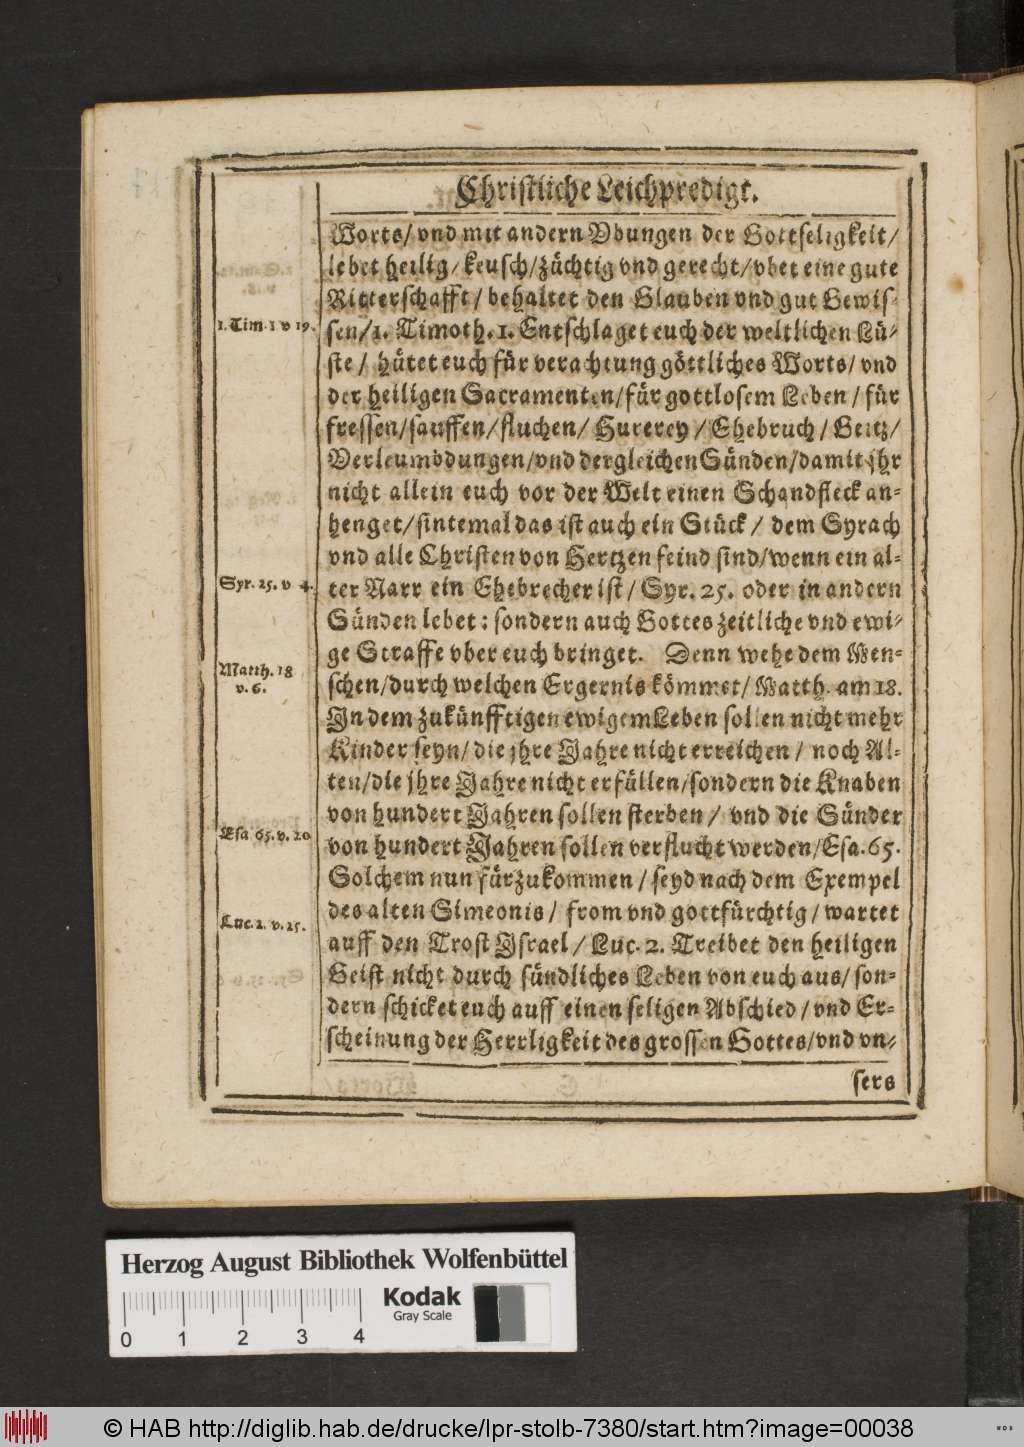 Christliche Leichpredigt.
Worts/ vnd mit andern Vbungen der Gottseligkeit/
lebet heilig/ keusch/ züchtig vnd gerecht/ vbet eine gute
Ritterschafft/ behaltet den Glauben vnd gut Gewis-
1. Tim. 1 v 19.
sen/ 1. Timoth. 1. Entschlaget euch der weltlichen Lü-
ste/ hütet euch für verachtung göttliches Worts/ vnd
der heiligen Sacramenten/ für gottlosem Leben/ für
fressen/ sauffen/ fluchen/ Hurerey/ Ehebruch/ Geitz/
Verleumbdungen/ vnd dergleichen Sünden/ damit jhr
nicht allein euch vor der Welt einen Schandfleck an-
henget/ sintemal das ist auch ein Stück/ dem Syrach
vnd alle Christen von Hertzen feind sind/ wenn ein al-
Syr. 25. v 4.
ter Narr ein Ehebrecher ist/ Syr. 25. oder in andern
Sünden lebet: sondern auch Gottes zeitliche vnd ewi-
ge Straffe vber euch bringet. Denn wehe dem Men-
Matth. 18
v. 6.
schen/ durch welchen Ergernis kömmet/ Matth. am 18.
In dem zukünfftigen ewigem Leben sollen nicht mehr
Kinder seyn/ die jhre Jahre nicht erreichen/ noch Al-
ten/ die jhre Jahre nicht erfüllen/ sondern die Knaben
von hundert Jahren sollen sterben/ vnd die Sünder
Esa 65. v. 20
von hundert Jahren sollen verflucht werden/ Esa. 65.
Solchem nun fürzukommen/ seyd nach dem Exempel
des alten Simeonis/ from vnd gottfürchtig/ wartet
Luc. 2. v. 25.
auff den Trost Israel/ Luc. 2. Treibet den heiligen
Geist nicht durch sündliches Leben von euch aus/ son-
dern schicket euch auff einen seligen Abschied/ vnd Er-
scheinung der Herrligkeit des grossen Gottes/ vnd vn-
sers
Herzog August Bibliothek Wolfenbüttel
Kodak
Gray Scale
0 1 2 3 4
© HAB http://diglib.hab.de/drucke/lpr-stolb-7380/start.htm?image=00038